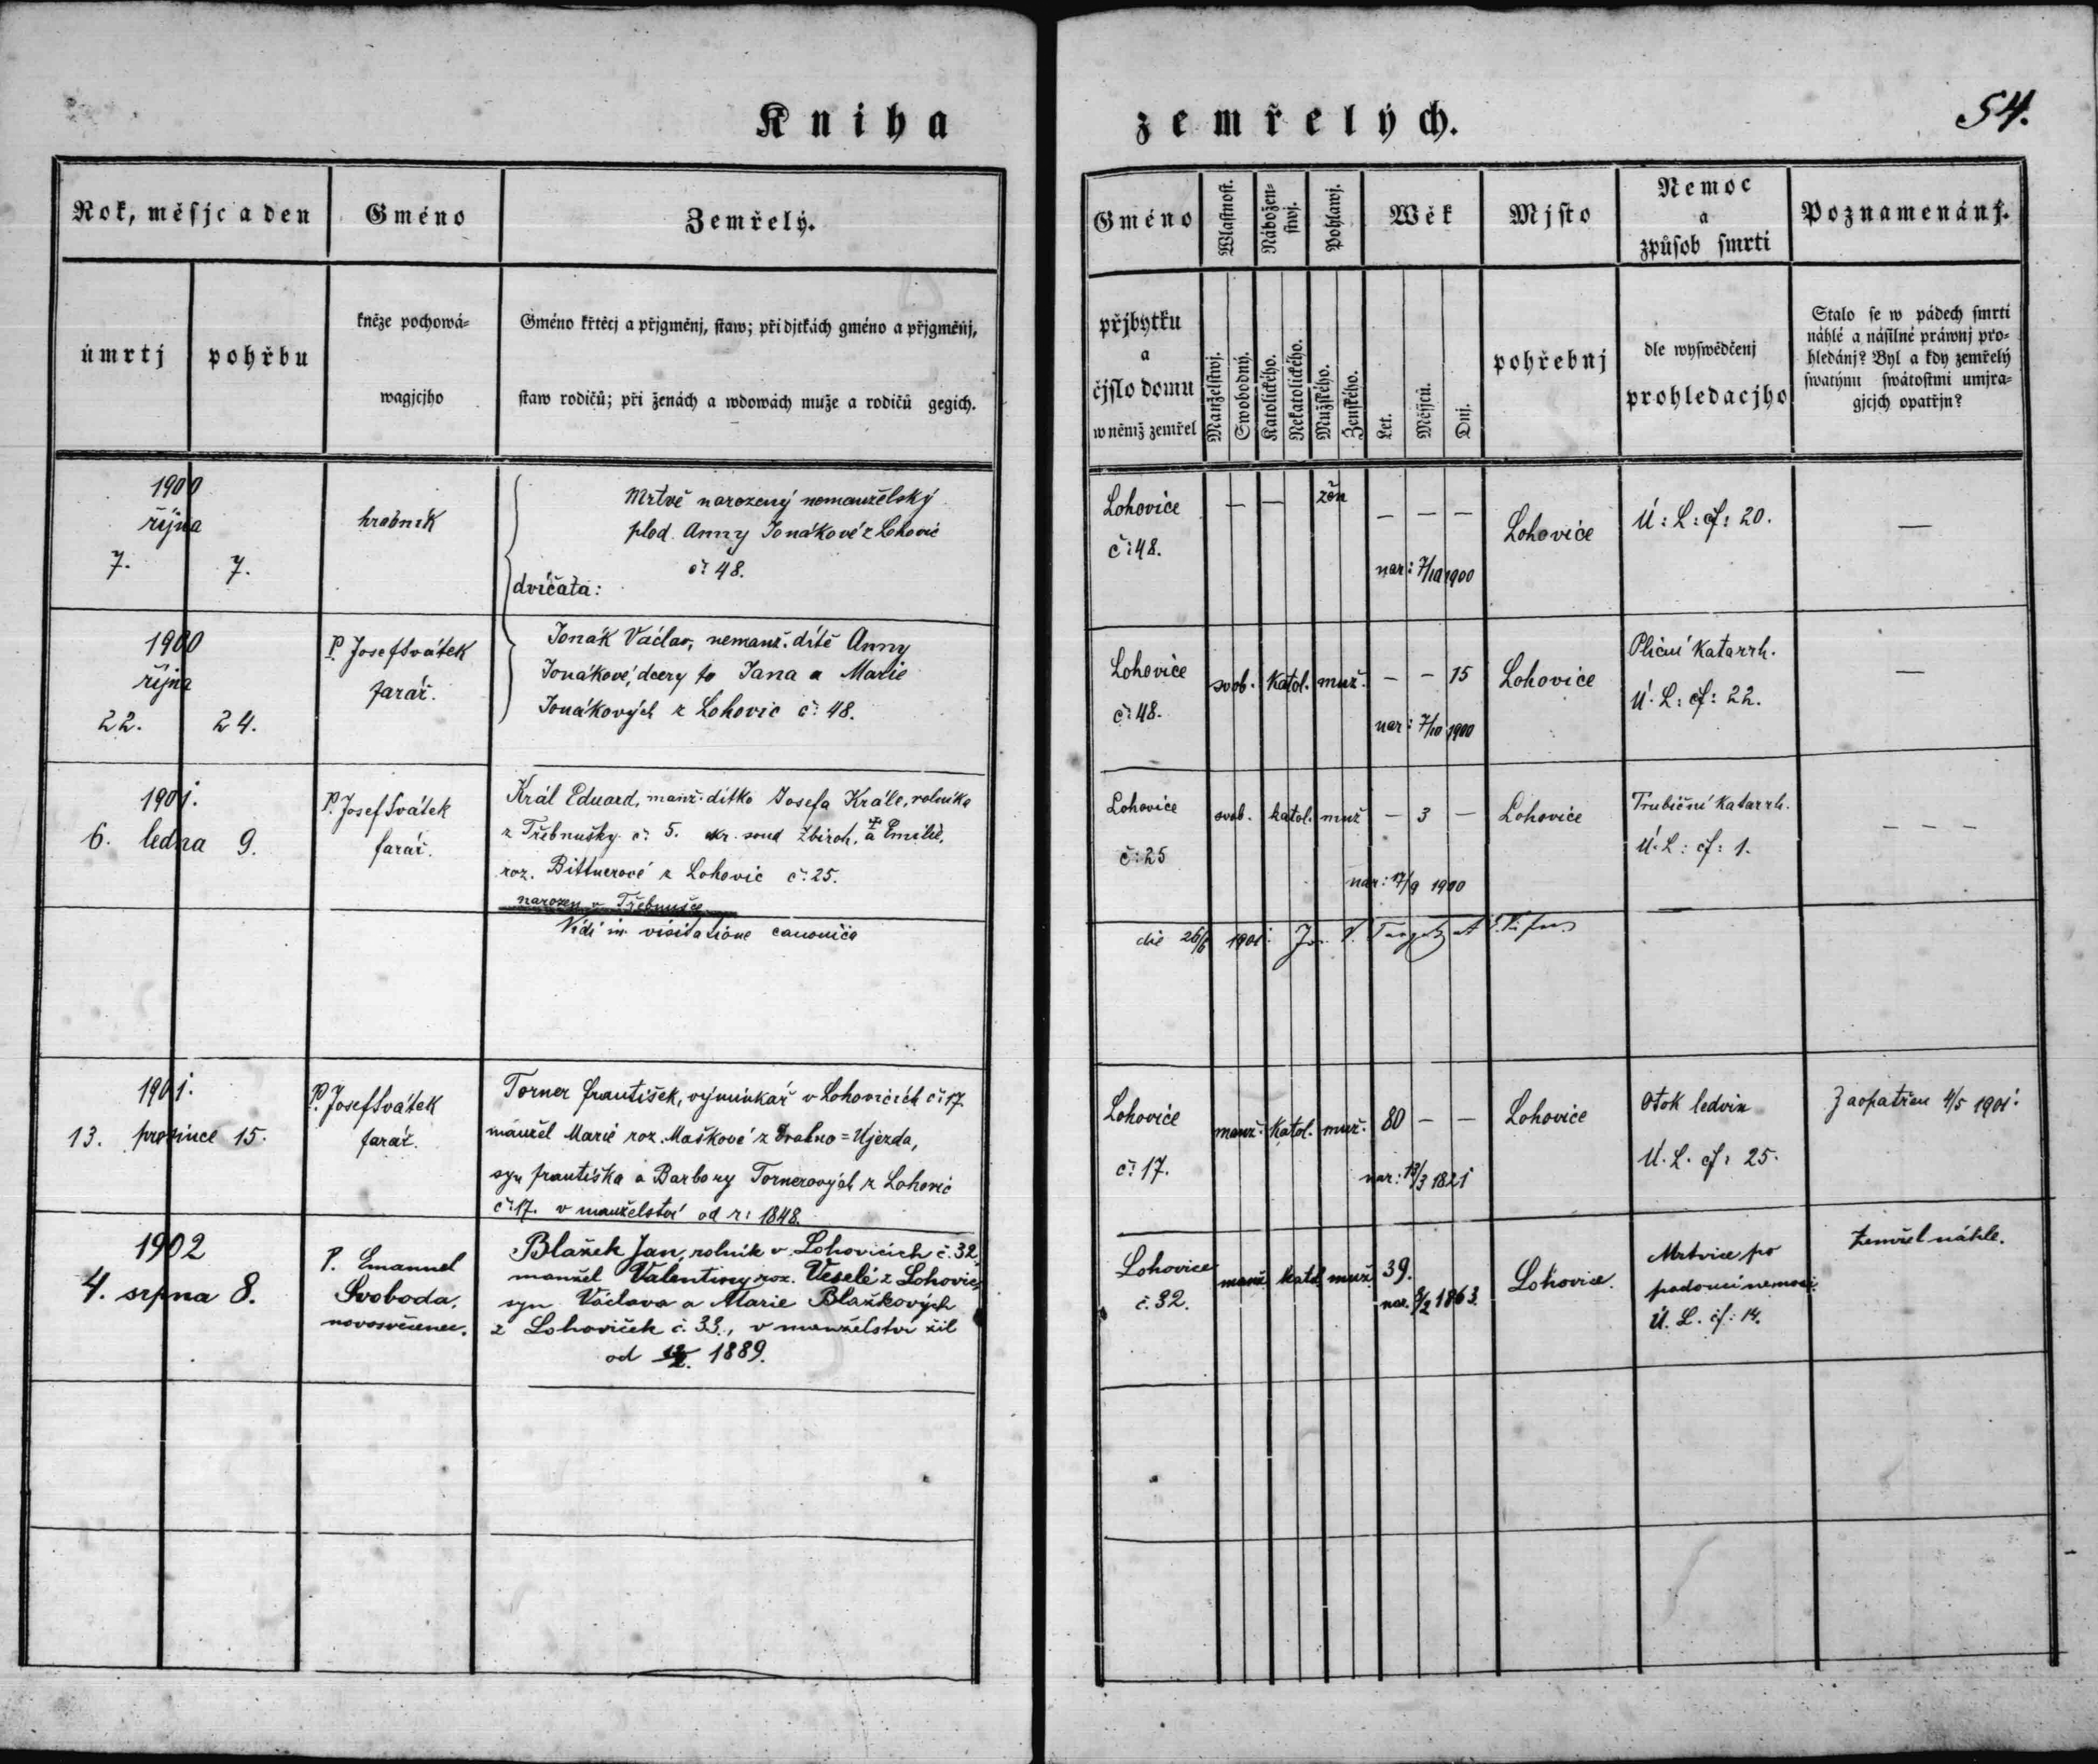 Kniha zemřelých.
54.
Rok, měsjc a den
Gméno
Zemřelý.
úmrtj
pohřbu
kněze pochowá-
wagjcjho
Gméno křtěcj a přjgměnj, staw; při djtkách gméno a přjgměnj,
staw rodičů; při ženách a wdowách muže a rodičů gegich.
Gméno
přjbytku
a
čjslo domu
w němž zemřel
Wlastnost.
Nábožen-
stwj.
Pohlawj.
Wěk
Mjsto
pohřebnj
Nemoc
a
způsob smrti
dle wyswědčenj
prohledacjho
Poznamenánj.
Stalo se w pádech smrti
náhlé a násilné práwnj pro-
hledánj? Byl a kdy zemřelý
swatými swátostmi umjra-
gjcjch opatřjn?
Manželstwj.
Swobodný.
Katolického.
Nekatolického.
Mužského.
Ženského.
Let.
Měsjců.
Dnj.
1900
října
7. 7.
hrobník
Mrtvě narozený nemanželský
plod Anny Jonákové z Lohovic
č: 48.
dvičata:
Lohovice
č: 48.
— —
žen
— — —
nar: 7/10 1900
Lohovice
Ú: L: čj: 20.
—
1900
října
22. 24.
P. Josef Svátek
farář.
Jonák Václav, nemanž. dítě Anny
Jonákové, dcery to Jana a Marie
Jonákových z Lohovic č: 48.
Lohovice
č: 48.
svob. katol. muž. — — 15
nar: 7/10 1900
Lohovice
Plicní katarrh.
Ú. L: čj: 22.
—
1901.
6. ledna 9.
P. Josef Svátek
farář.
Král Eduard, manž. dítko Josefa Krále, rolníka
z Třebnušky č: 5. okr. soud Zbiroh. a Emilie,
roz. Bittnerové z Lohovic č: 25.
narozen v Třebnušce
Lohovice
č: 25
svob. katol. muž — 3 —
nar: 17/9 1900
Lohovice
Trubiční katarrh.
Ú. L: čj: 1.
— — —
Vidi in visitatione canonica
die 26/6 1901.
1901.
13. prosince 15.
P. Josef Svátek
farář.
Torner František, výminkář v Lohovicích č: 17.
manžel Marie roz. Maškové z Drahno=Ujezda,
syn Františka a Barbory Tornerových z Lohovic
č: 17. v manželství od r: 1848.
Lohovice
č: 17.
manž. katol. muž. 80 — —
nar: 13/3 1821
Lohovice
Otok ledvin
Ú. L. čj: 25.
Zaopatřen 4/5 1901.
1902
4. srpna 8.
P. Emanuel
Svoboda,
novosvěcenec.
Blažek Jan, rolník v Lohovicích č. 32,
manžel Valentiny roz. Veselé z Lohovic,
syn Václava a Marie Blažkových
z Lohoviček č. 33., v manželství žil
od 1889.
Lohovice
č. 32.
manž. katol. muž. 39.
nar. 8/2 1863.
Lohovice.
Mrtvice po
padoucí nemoci.
Ú. L. čj: 14.
Zemřel náhle.